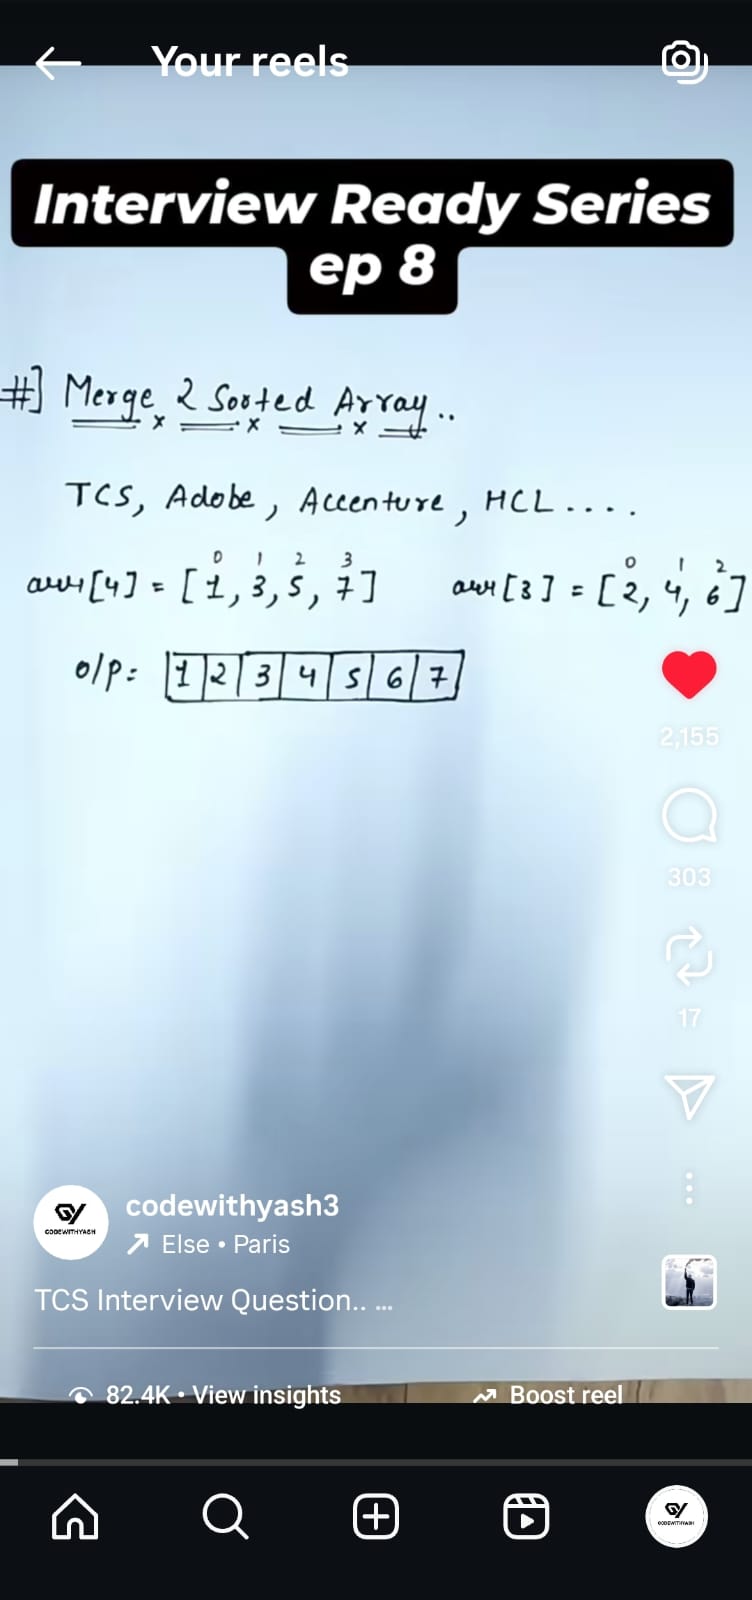 Your reels
Interview Ready Series
ep 8
#] Merge 2 Sorted Array..
TCS, Adobe, Accenture, HCL....
0 1 2 3
arr[4] = [1, 3, 5, 7]
0 1 2
arr[3] = [2, 4, 6]
o/p: 1 2 3 4 5 6 7
2,155
303
17
codewithyash3
Else • Paris
TCS Interview Question.. ...
82.4K • View insights
Boost reel
GY
CODEWITHYASH